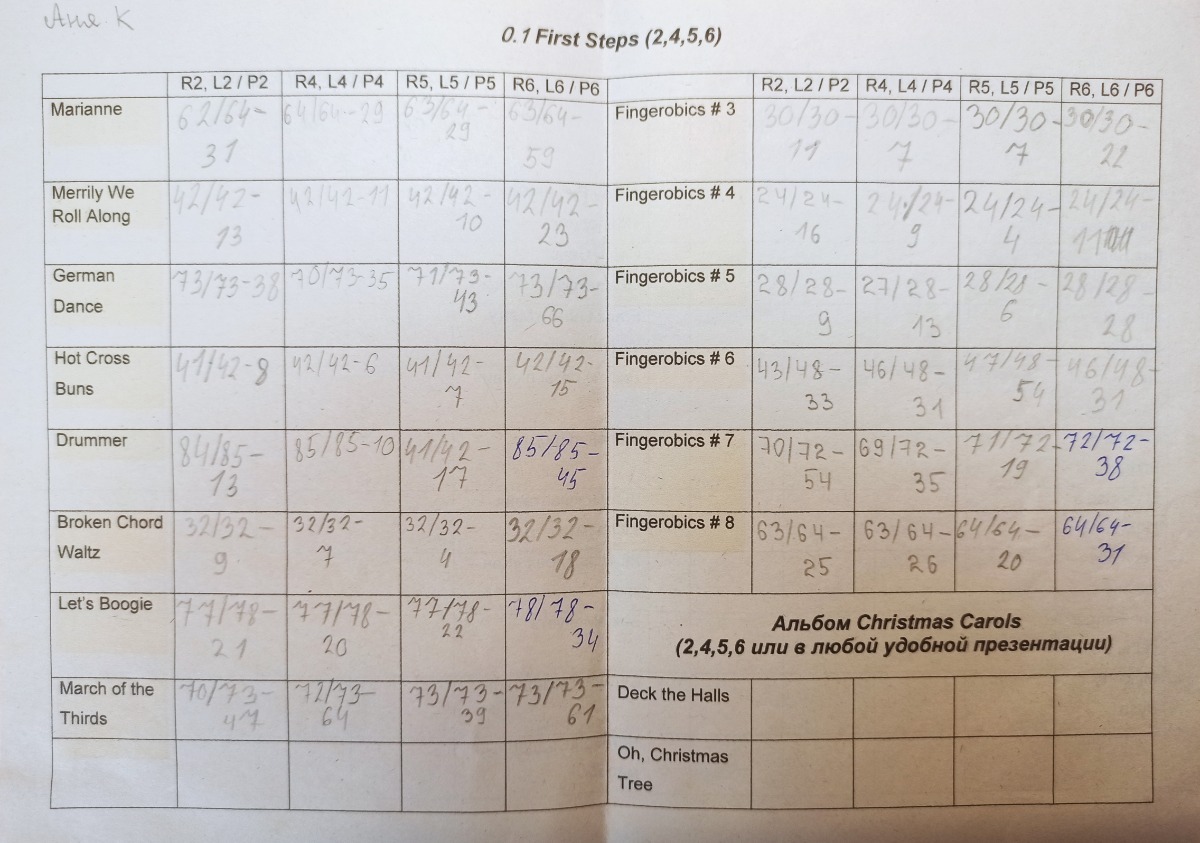 Анг. К
0.1 First Steps (2,4,5,6)
R2, L2 / P2 R4, L4 / P4 R5, L5 / P5 R6, L6 / P6 R2, L2 / P2 R4, L4 / P4 R5, L5 / P5 R6, L6 / P6
Marianne 62/64- 64/64-29 63/64- 63/64- Fingerobics # 3 30/30- 30/30- 30/30- 30/30-
31 29 59 11 7 7 22
Merrily We 42/42- 42/42-11 42/42- 42/42- Fingerobics # 4 24/24- 24/24- 24/24- 24/24-
Roll Along 13 10 23 16 9 4 11
German 73/73-38 70/73-35 71/73- 73/73- Fingerobics # 5 28/28- 27/28- 28/28- 28/28-
Dance 43 66 9 13 6 28
Hot Cross 41/42-8 42/42-6 41/42- 42/42- Fingerobics # 6 43/48- 46/48- 47/48- 46/48-
Buns 7 15 33 31 54 31
Drummer 84/85- 85/85-10 41/42- 85/85- Fingerobics # 7 70/72- 69/72- 71/72- 72/72-
13 17 45 54 35 19 38
Broken Chord 32/32- 32/32- 32/32- 32/32- Fingerobics # 8 63/64- 63/64- 64/64- 64/64-
Waltz 9 7 4 18 25 26 20 31
Let's Boogie 77/78- 77/78- 77/78- 78/78-
21 20 22 34
Альбом Christmas Carols
(2,4,5,6 или в любой удобной презентации)
March of the 70/73- 72/73- 73/73- 73/73- Deck the Halls
Thirds 47 64 39 61
Oh, Christmas
Tree